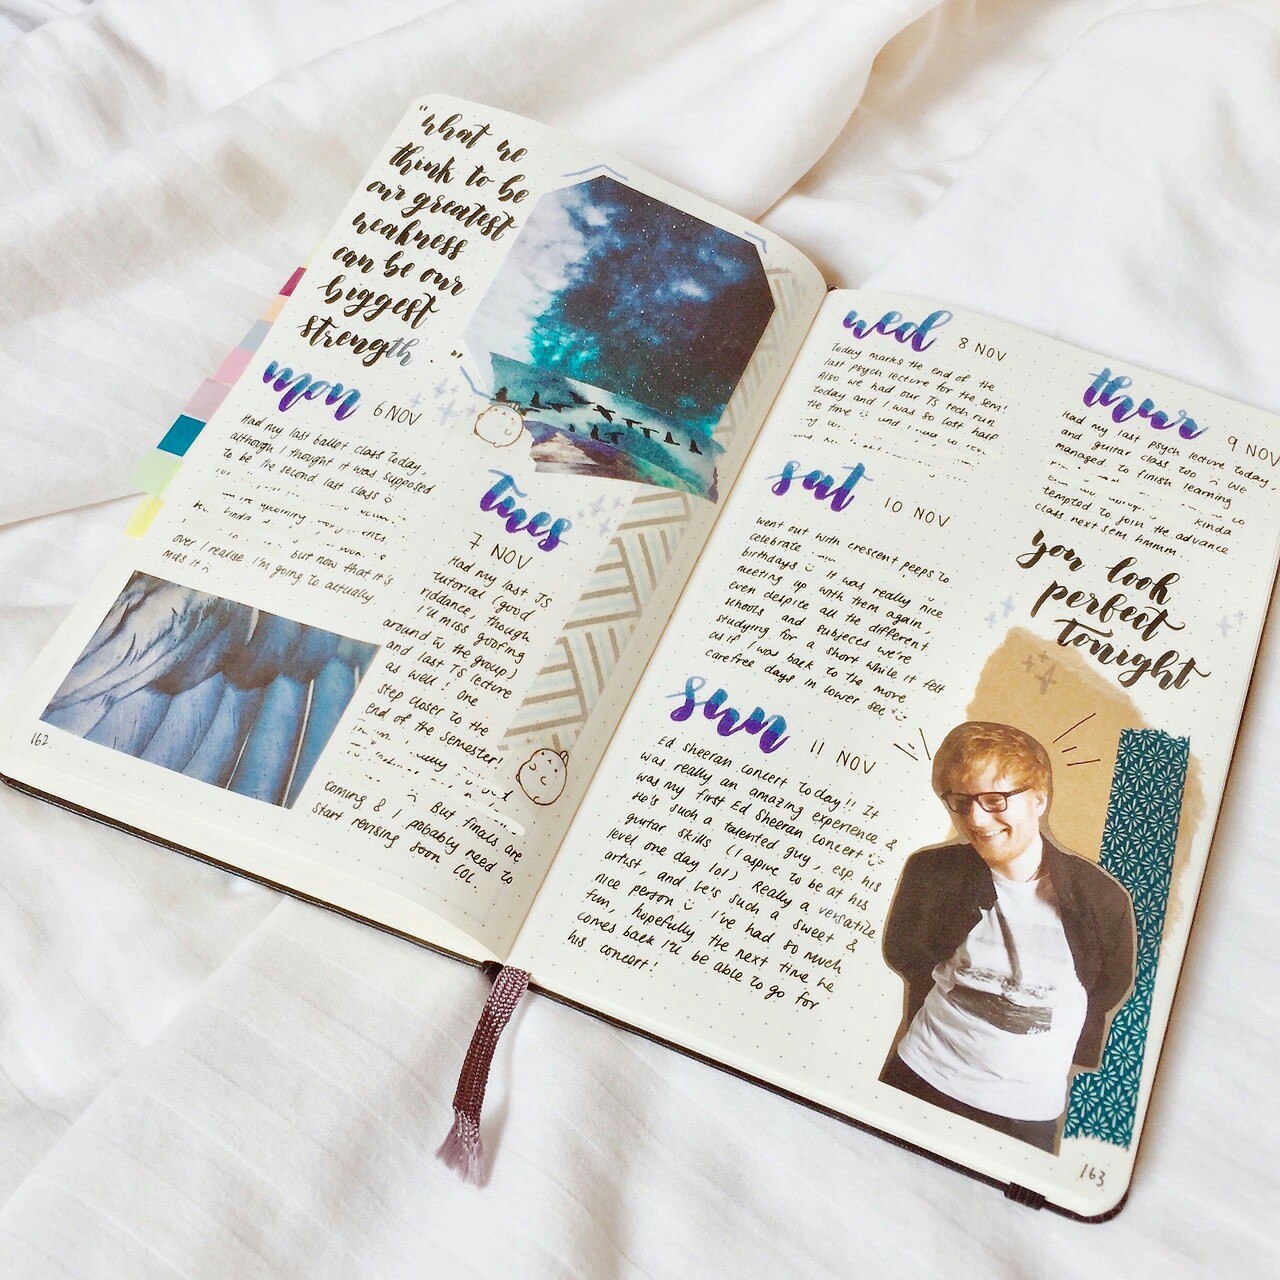 "what we
think to be
our greatest
weakness
can be our
biggest
strength."
mon 6 NOV
Had my last ballet class today,
although I thought it was supposed
to be the second last class
upcoming
kinda
but now that it's
over I realise I'm going to actually
miss it
162
tues
7 NOV
Had my last TS
tutorial (good
riddance, though
I'll miss goofing
around w the group)
and last TS lecture
as well! One
step closer to the
end of the semester!
But finals are
coming & I pobably need to
start revising soon LOL.
wed 8 NOV
Today marks the end of the
last psych lecture for the sem!
Also we had our TS tech run
today and I was so lost half
the time
thur 9 NOV
Had my last psych lecture today,
and guitar class too We
managed to finish learning
kinda
tempted to join the advance
class next sem hmmm.
sat 10 NOV
went out with crescent peeps to
celebrate
birthdays It was really nice
meeting up with them again,
even despite all the different
schools and subjects we're
studying for a short while it felt
as if I was back to the more
carefree days in lower sec
sun 11 NOV
Ed Sheeran concert today!! It
was really an amazing experience &
was my first Ed Sheeran concert
He's such a talented guy, esp his
guitar skills (I aspire to be at his
level one day lol) Really a versatile
artist, and he's such a sweet &
nice person I've had so much
fun, hopefully the next time he
comes back I'll be able to go for
his concert!
you look
perfect
tonight
163